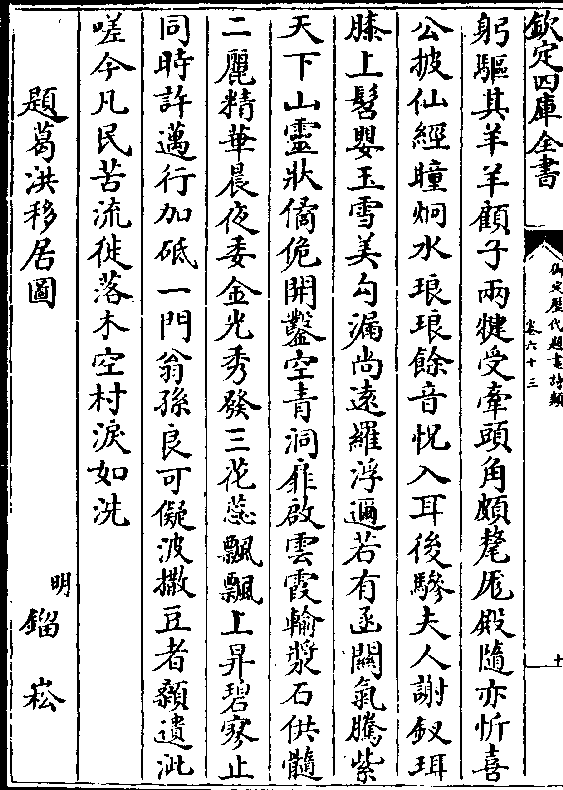 欽定四庫全書
御定歷代題畫詩類
卷六十三
十
躬驅其羊羊顧子兩犍受牽頭角頗氂尨殿隨亦忻喜
公披仙經瞳炯水琅琅餘音怳入耳後驂夫人謝釵珥
膝上髫嬰玉雪美勾漏尚遠羅浮邇若有函關氣騰紫
天下山靈狀僑佹開鑿空青洞扉啟雲霞輸漿石供髓
二麗精華晨夜委金光秀發三花蕊飄飄上昇碧寥止
同時許邁行加砥一門翁孫良可儗波撒豆者顙遺泚
嗟今凡民苦流徙落木空村淚如洗
題葛洪移居圖
明
鎦崧